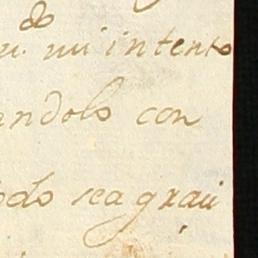 do
u. mi intento
andolo con
odo sea grau